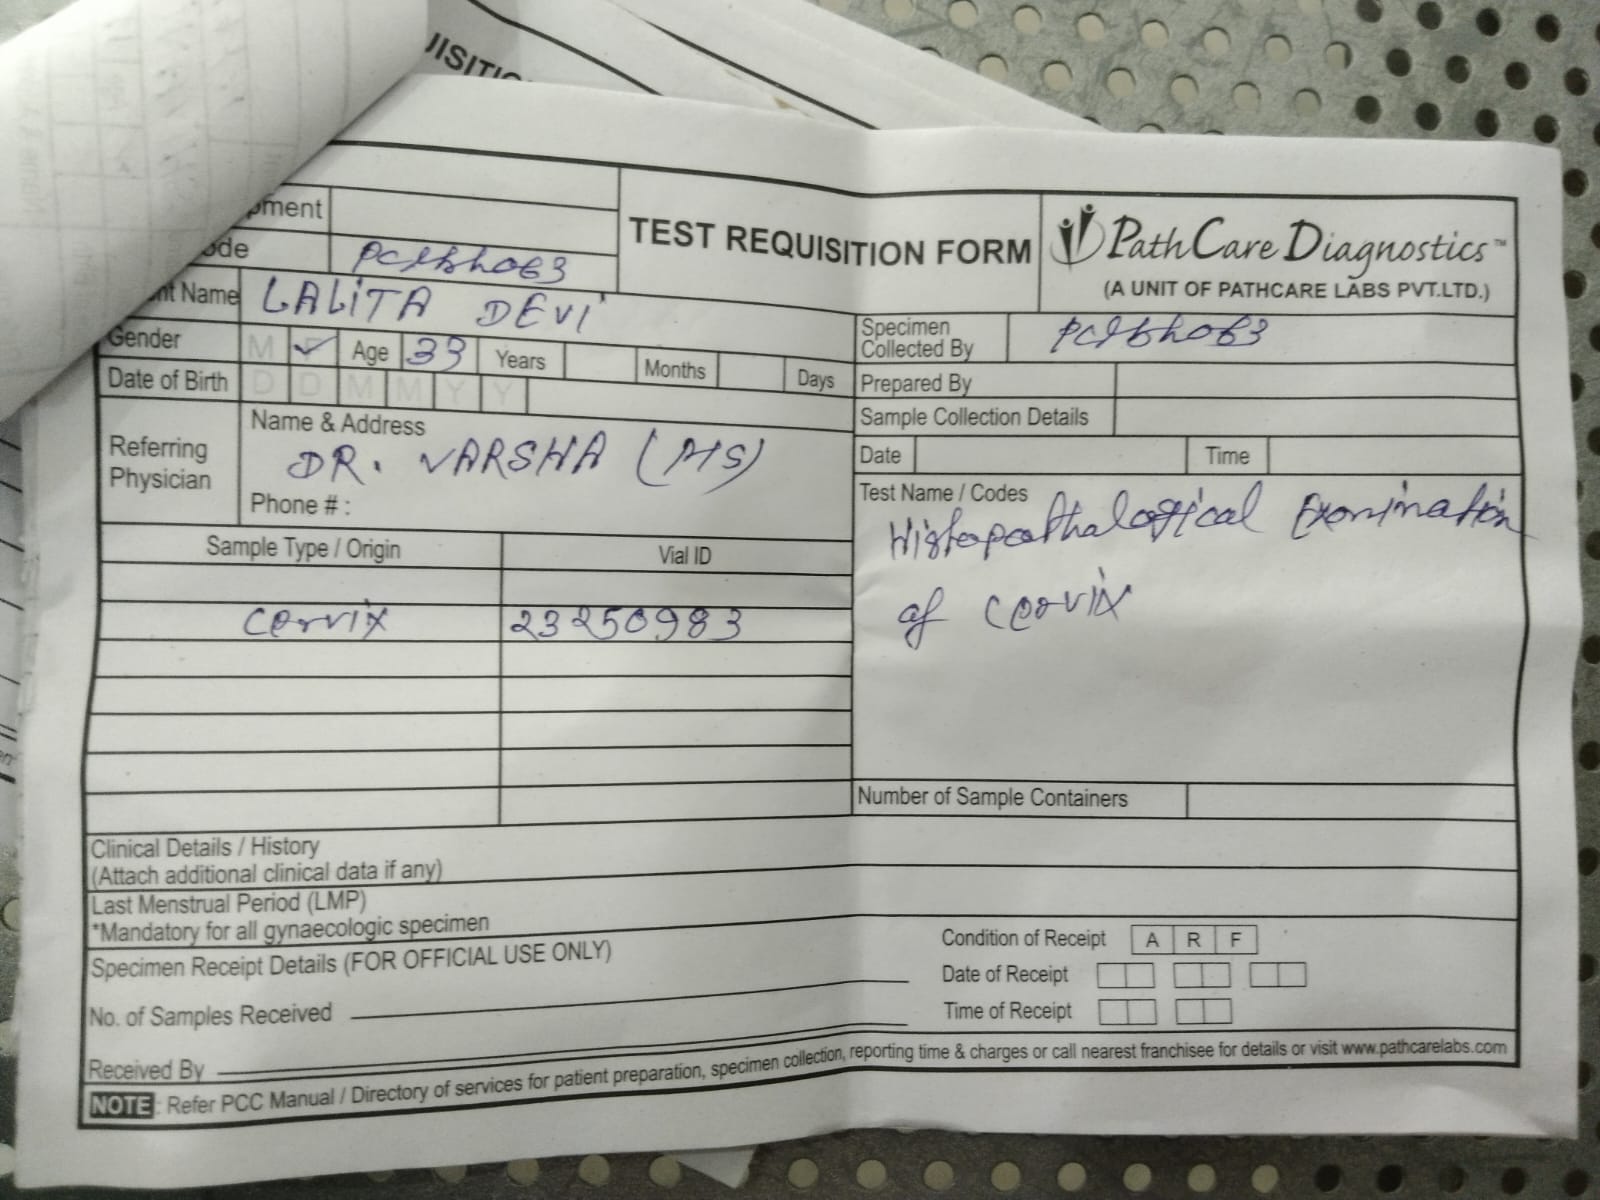 UISITIO
TEST REQUISITION FORM
PathCare Diagnostics™
(A UNIT OF PATHCARE LABS PVT.LTD.)
pment
ode
nt Name LALITA DEVI
Gender M F Age 33 Years Months Days
Date of Birth D D M M Y Y
Referring Physician
Name & Address
DR. VARSHA (MS)
Phone # :
Specimen Collected By
Prepared By
Sample Collection Details
Date Time
Test Name / Codes
Histopathalogical Examination
of Cervix
Sample Type / Origin Vial ID
Cervix 23250983
Number of Sample Containers
Clinical Details / History
(Attach additional clinical data if any)
Last Menstrual Period (LMP)
*Mandatory for all gynaecologic specimen
Specimen Receipt Details (FOR OFFICIAL USE ONLY)
No. of Samples Received
Received By
Condition of Receipt A R F
Date of Receipt
Time of Receipt
NOTE : Refer PCC Manual / Directory of services for patient preparation, specimen collection, reporting time & charges or call nearest franchisee for details or visit www.pathcarelabs.com